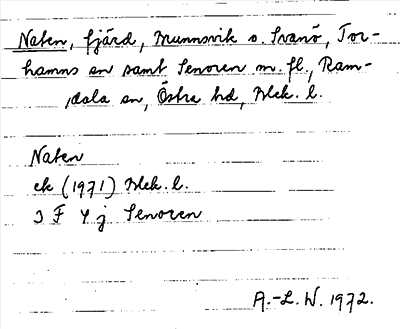 Naten, fjärd, Munnsvik o. Svanö, Tor-
hamns sn samt Senoren m. fl., Ram-
dala sn, Östra hd, Blek. l.
Naten
ek (1971) Blek. l.
3 F 4 j Senoren
A.-L. W. 1972.